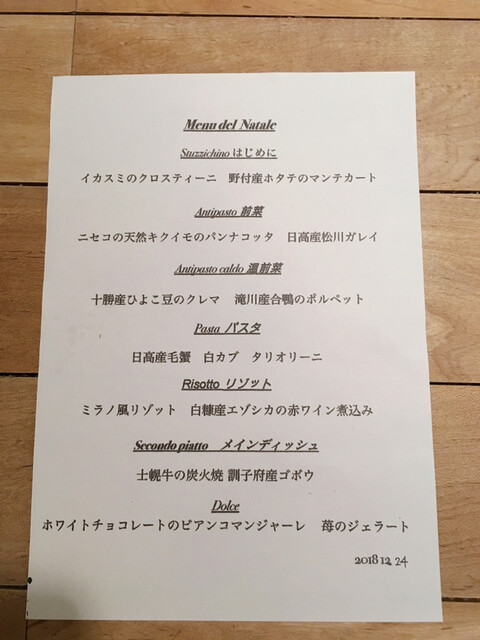 Menu del Natale
Stuzzichino はじめに
イカスミのクロスティーニ 野付産ホタテのマンテカート
Antipasto 前菜
ニセコの天然キクイモのパンナコッタ 日高産松川ガレイ
Antipasto caldo 温前菜
十勝産ひよこ豆のクレマ 滝川産合鴨のポルペット
Pasta パスタ
日高産毛蟹 白カブ タリオリーニ
Risotto リゾット
ミラノ風リゾット 白糠産エゾシカの赤ワイン煮込み
Secondo piatto メインディッシュ
士幌牛の炭火焼 訓子府産ゴボウ
Dolce
ホワイトチョコレートのビアンコマンジャーレ 苺のジェラート
2018 12. 24